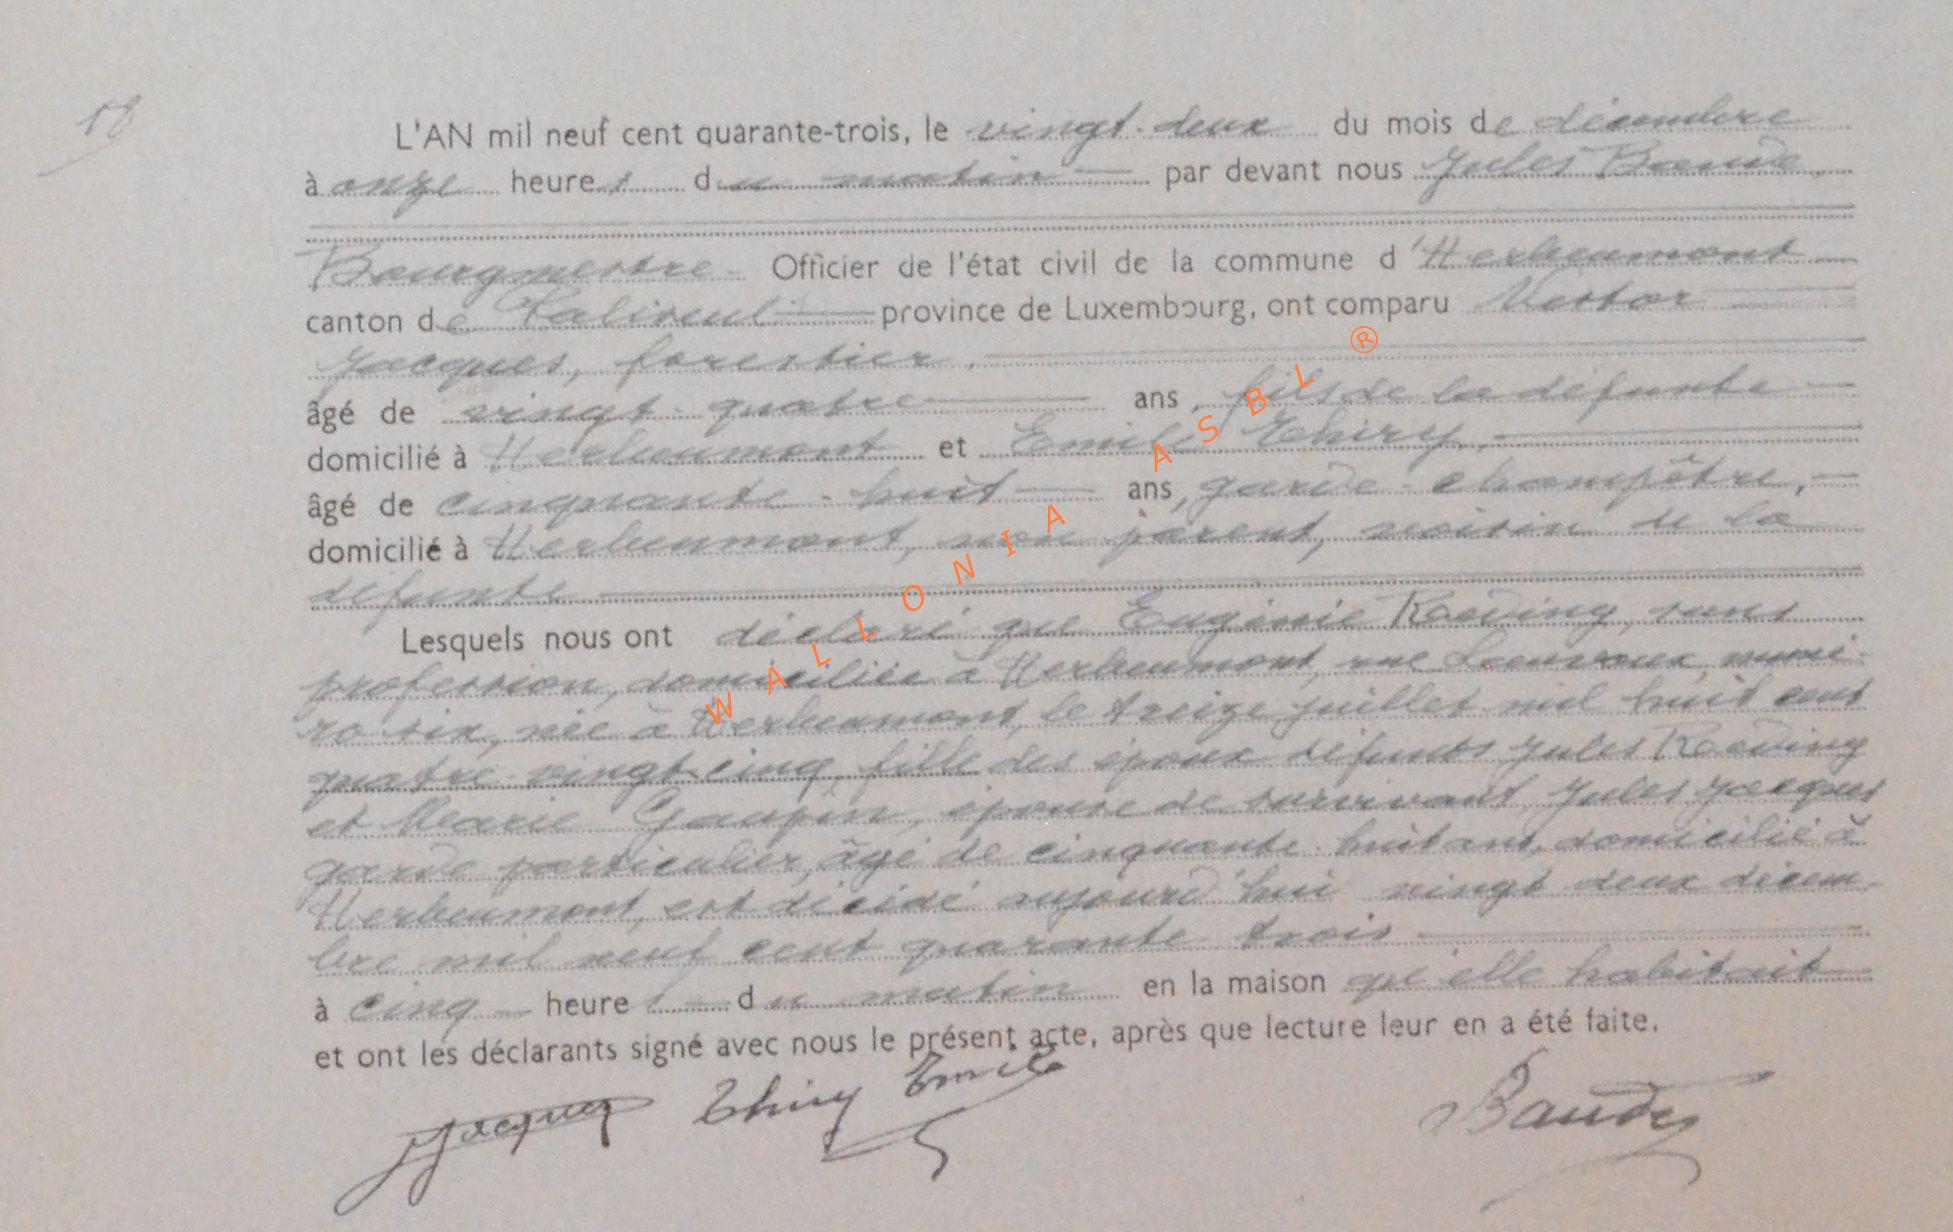 18
L'AN mil neuf cent quarante-trois, le vingt-deux du mois de décembre
à onze heures du matin par devant nous Jules Baude,
Bourgmestre Officier de l'état civil de la commune d'Herbeumont
canton de Paliseul province de Luxembourg, ont comparu
Jacques, forestier,
âgé de vingt-quatre ans, fils de la défunte
domicilié à Herbeumont et Emile Thiry,
âgé de cinquante-huit ans, garde-champêtre,
domicilié à Herbeumont, non parent, voisin de la
défunte
Lesquels nous ont déclaré que Eugénie Roeding, sans
profession, domiciliée à Herbeumont, rue numé-
ro six, née à Herbeumont, le treize juillet mil huit cent
quatre-vingt-cinq, fille des époux défunts Jules Roeding
et Marie Gaupin, épouse de survivant Jules Jacques
garde particulier, âgé de cinquante-huit ans, domicilié à
Herbeumont, est décédé aujourd'hui vingt deux décem-
bre mil neuf cent quarante-trois
à cinq heures du matin en la maison qu'elle habitait
et ont les déclarants signé avec nous le présent acte, après que lecture leur en a été faite.
Jacques Thiry Emile Baude
WALLONIA ASBL ®